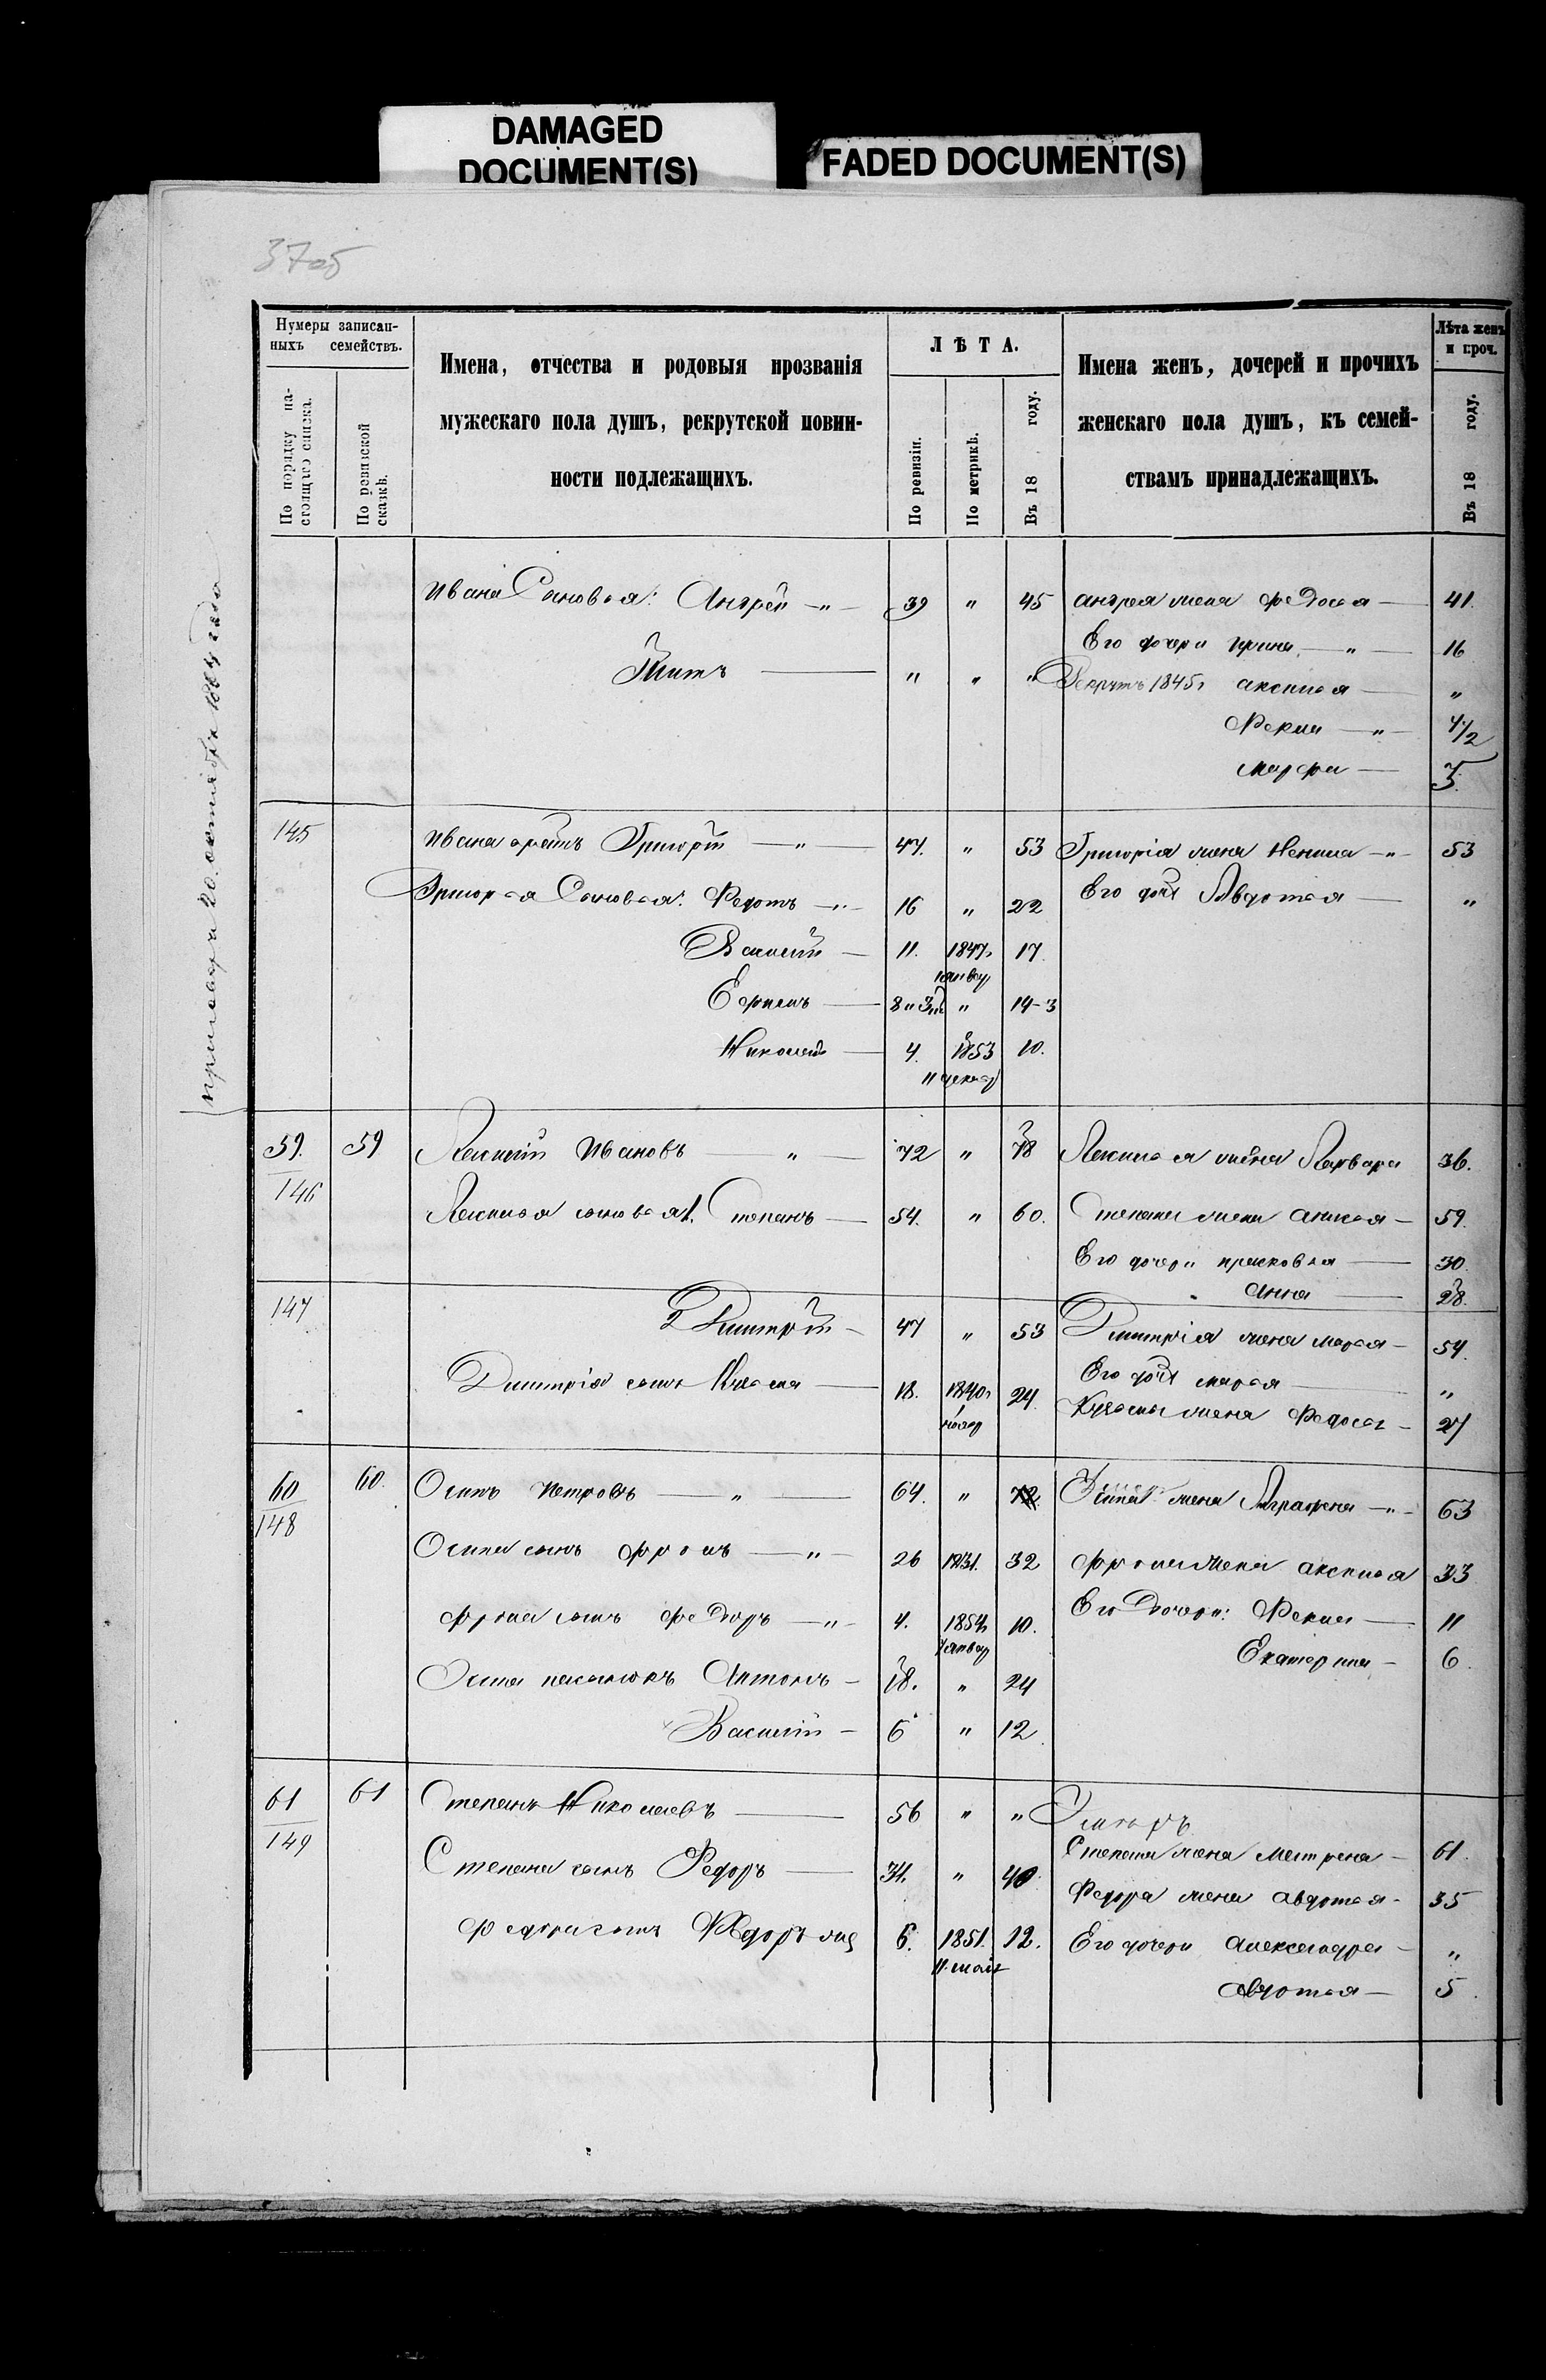 DAMAGED
DOCUMENT(S)
FADED DOCUMENT(S)
37об
Нумеры записан-
ныхъ семействъ.
По порядку на-
стоящаго списка.
По ревизской
сказкѣ.
Имена, отчества и родовыя прозванія
мужескаго пола душъ, рекрутской повин-
ности подлежащихъ.
ЛѢТА.
По ревизіи.
По метрикѣ.
Въ 18 году.
Имена женъ, дочерей и прочихъ
женскаго пола душъ, къ семей-
ствамъ принадлежащихъ.
Лѣта женъ
и проч.
Въ 18 году.
Ивана Сыновья: Андрей — 39 " 45 Андрея жена Федосья — 41.
Его дочери Ирина — " — 16
Титъ — " " " Рекрутъ 1845г Аксинья — "
Фекла — " — 4 1/2
Марфа — 3.
145 Ивана братъ Григорій — " — 47. " 53 Григорія жена Ненила — " — 53
Григорья Сыновья: Федотъ — " — 16 " 22 Его дочь Авдотья — "
Василій — 11. 1847г 17.
январ
Ефимъ — 8 " 3м " 14-3
Николай — 4. 1853 10.
11 декаб
59. 59 Алексѣй Ивановъ — " — 72 " 78 Алексѣя жена Варвара 36.
146
Алексѣя сыновья 1. Степанъ — 54. " 60. Степана жена Анисья — 59.
Его дочери Прасковья — 30.
Анна — 28.
147 2 Дмитрій — 47 " 53 Дмитрія жена Марья — 54.
Его дочь Марья — "
Дмитрія сынъ Кузьма — 18. 1840г 24.
нояб
Кузьмы жена Федосья — 27
60 60. Осипъ Петровъ — " — 64. " 72 Осипа жена Аграфена — " — 63
148
Осипа сынъ Фролъ — " — 26 1831. 32 Фрола жена Аксинья 33
Фрола сынъ Федоръ — " — 4. 1854г 10. Его Дочери: Фекла — 11
январ
Екатерина — 6.
Осипа пасынокъ Антонъ — 18. " 24
Василій — 6 " 12
61 61 Степанъ Николаевъ — 56 " "
149
Степана жена Матрена — 61.
Степана сынъ Федоръ — 34. " 40 Федора жена Авдотья — 35
Федора сынъ Федоръ же 6. 1851. 12. Его дочери Александра — "
11 мая
Авдотья — 5.